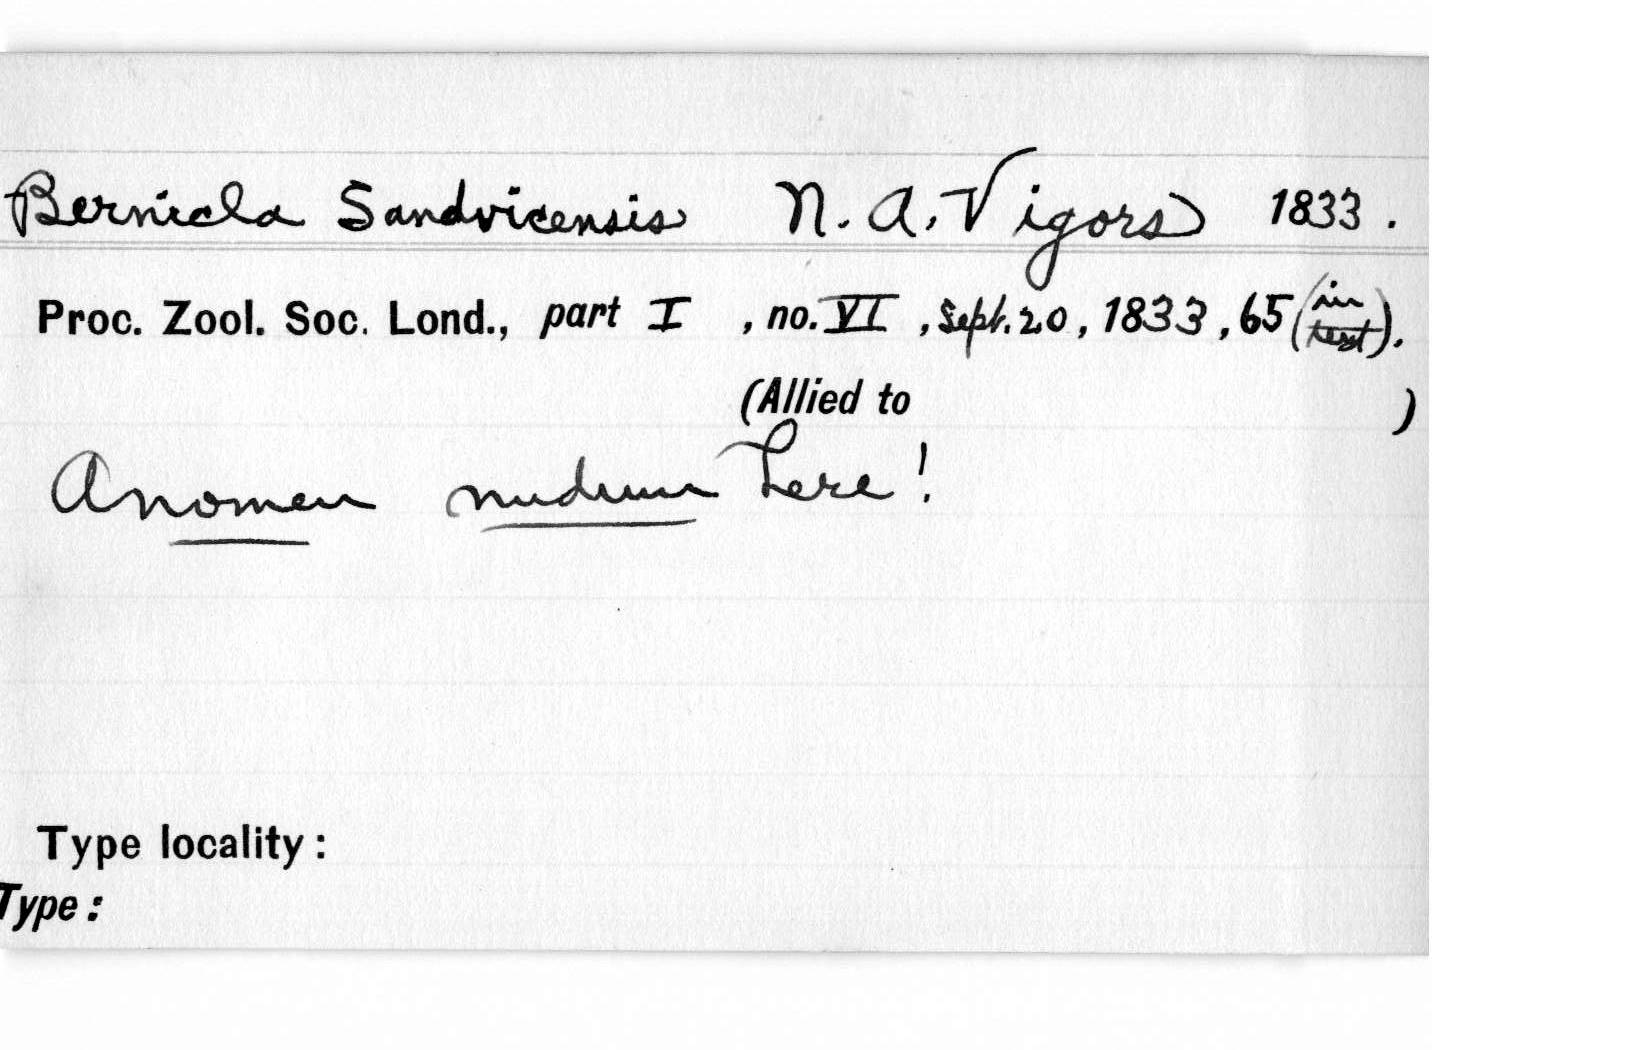 Bernicla Sandvicensis N. A. Vigors 1833.
Proc. Zool. Soc. Lond., part I , no. VI , Sept. 20 , 1833 , 65 (in text).
(Allied to )
A nomen nudum here!
Type locality:
Type: